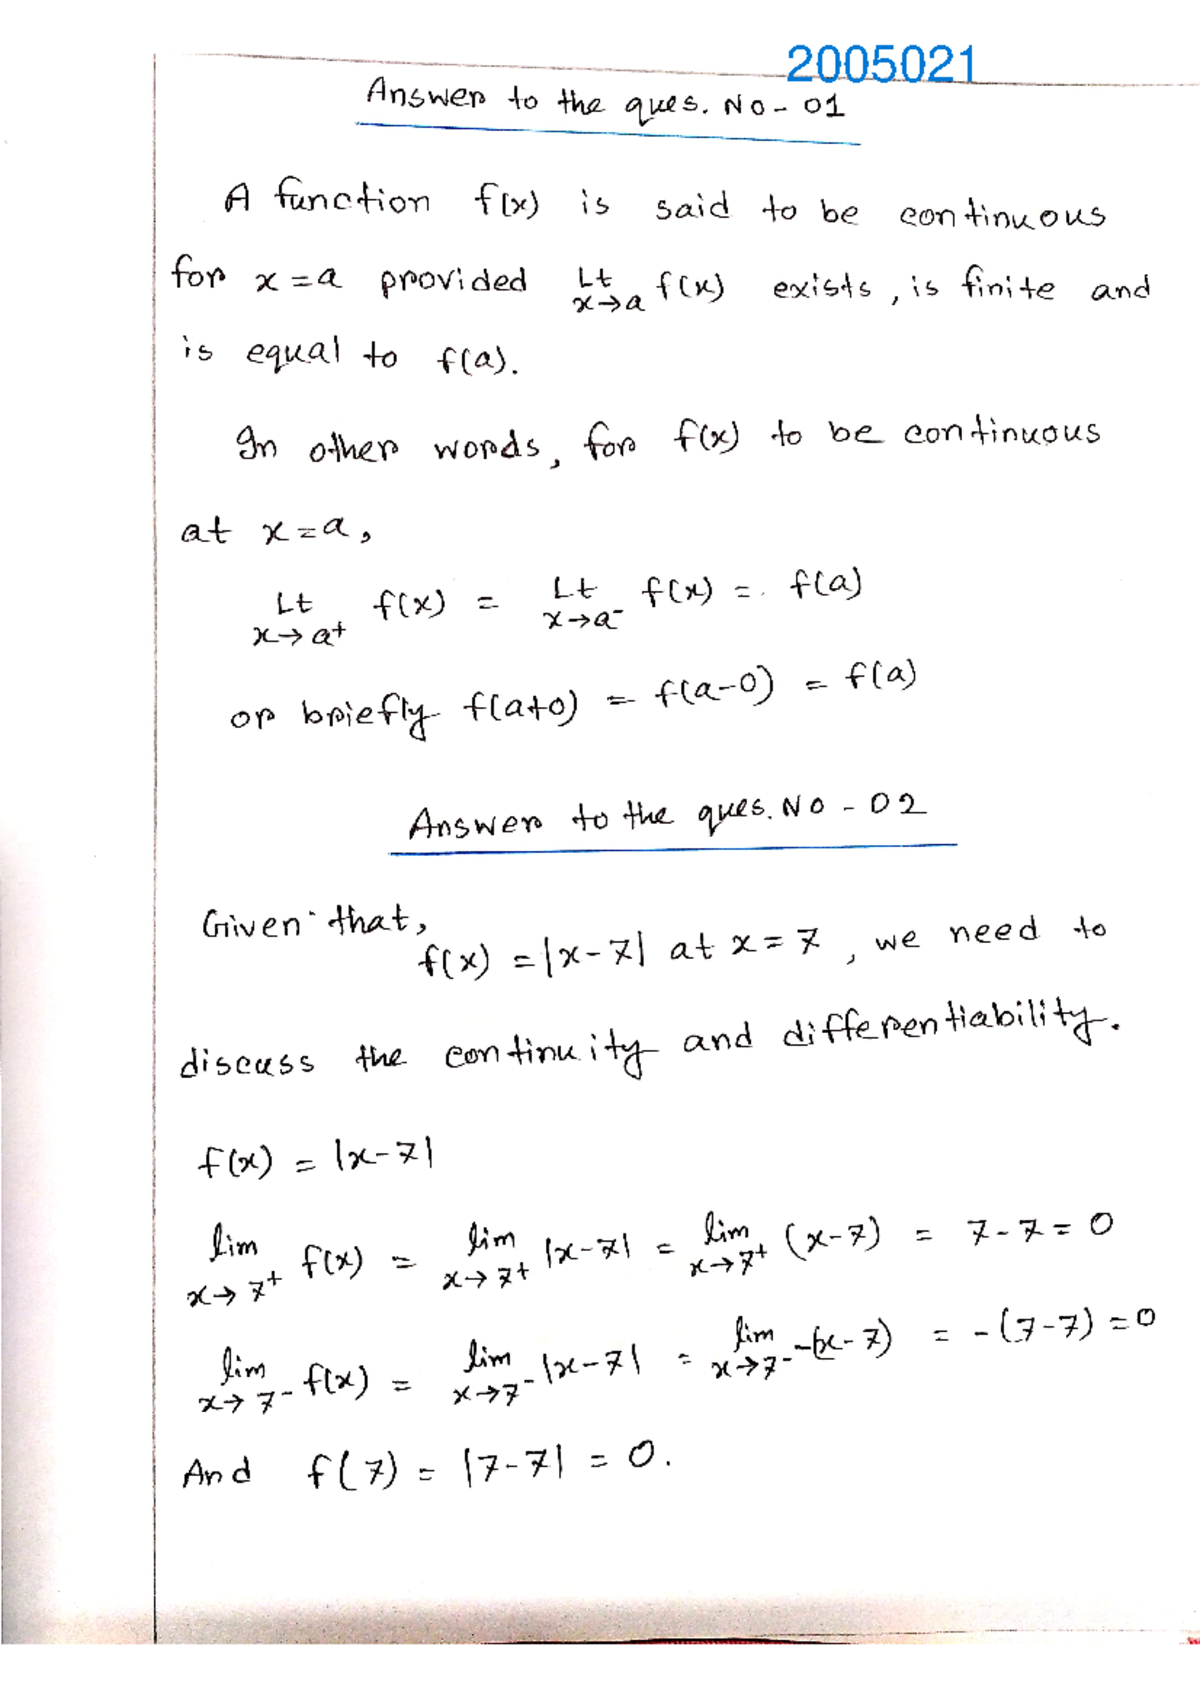 2005021
Answer to the ques. No - 01
A function f(x) is said to be continuous
for x = a provided Lt x→a f(x) exists, is finite and
is equal to f(a).
In other words, for f(x) to be continuous
at x = a,
Lt x→a+ f(x) = Lt x→a- f(x) = f(a)
or briefly f(a+0) = f(a-0) = f(a)
Answer to the ques. No - 02
Given that,
f(x) = |x-7| at x = 7, we need to
discuss the continuity and differentiability.
f(x) = |x-7|
lim x→7+ f(x) = lim x→7+ |x-7| = lim x→7+ (x-7) = 7-7 = 0
lim x→7- f(x) = lim x→7- |x-7| = lim x→7- -(x-7) = -(7-7) = 0
And f(7) = |7-7| = 0.